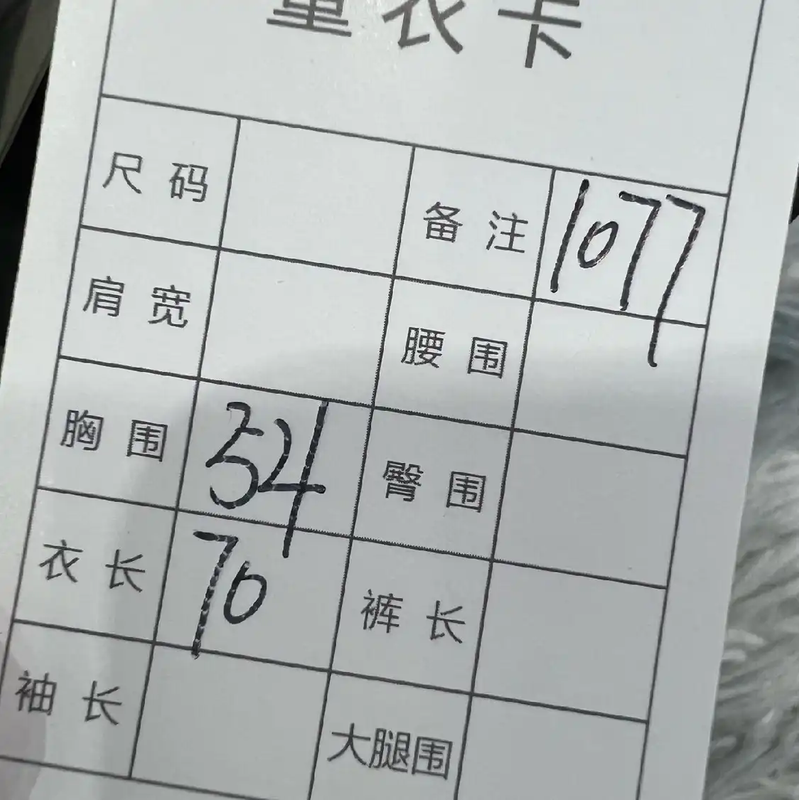 量衣卡
尺码 备注 1077
肩宽 腰围
胸围 54 臀围
衣长 70 裤长
袖长 大腿围